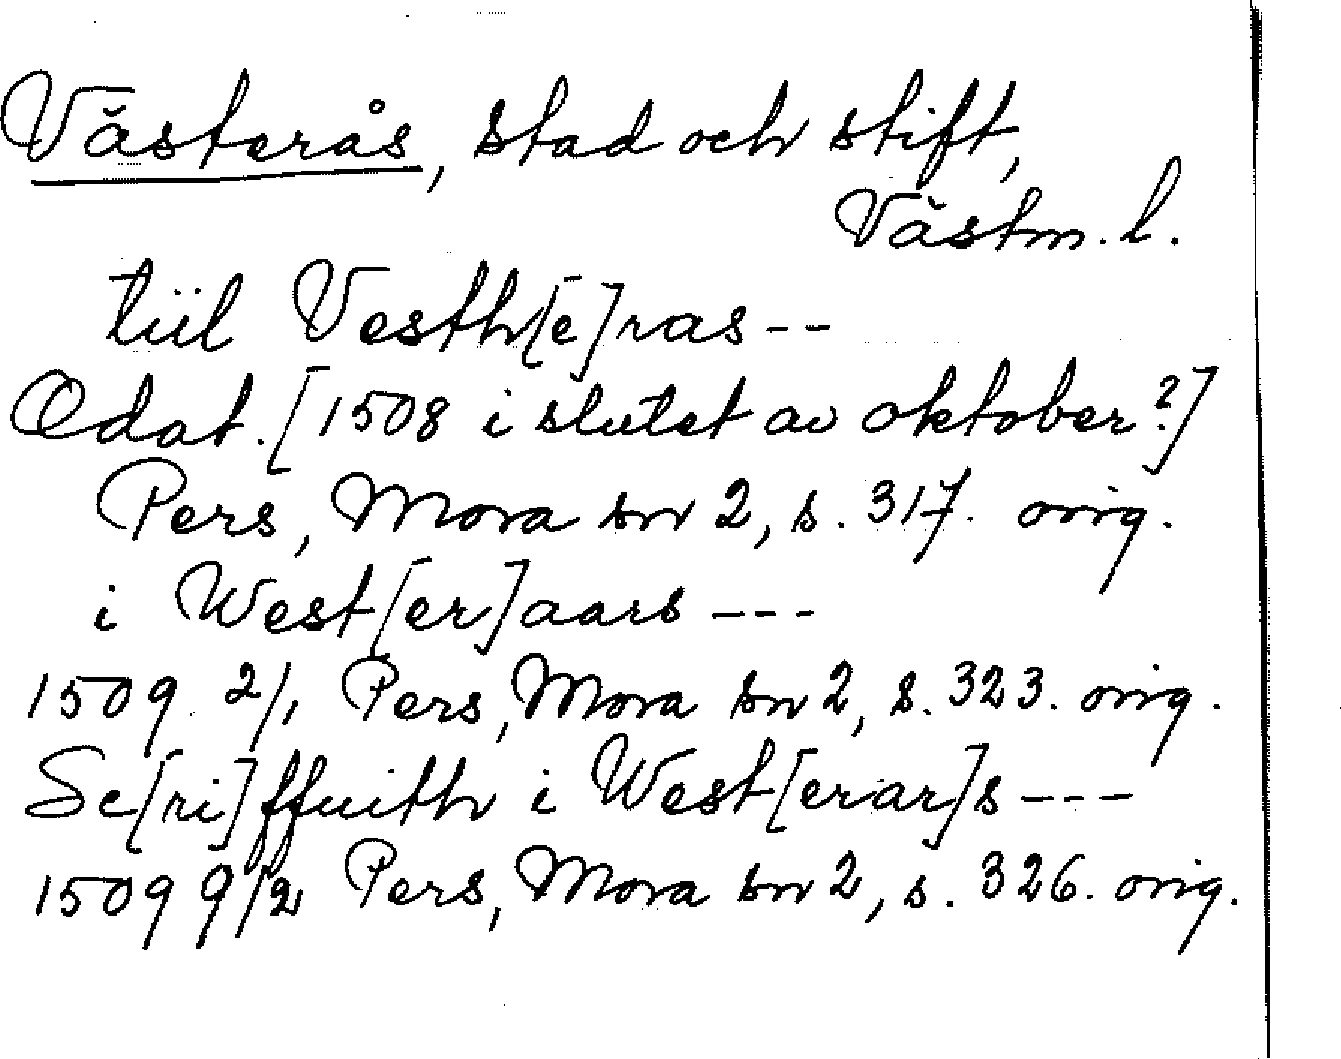 Västerås, stad och stift,
Västm. l.
tiil Vesth[e]ras --
Odat. [1508 i slutet av oktober?]
Pers, Mora sn 2, s. 317. orig.
i West[er]aars ---
1509 2/1 Pers, Mora sn 2, s. 323. orig.
Sc[ri]ffuith i West[erar]s ---
1509 9/2 Pers, Mora sn 2, s. 326. orig.